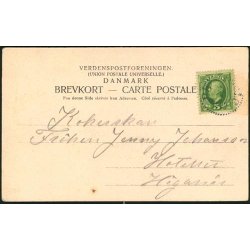 VERDENSPOSTFORENINGEN.
(UNION POSTALE UNIVERSELLE.)
DANMARK
BREVKORT — CARTE POSTALE
Paa denne Side skrives kun Adressen. Côté réservé à l'adresse.
Fröken Jenny Johansson
Hotellet
Höganäs